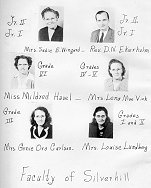 Jr. II
Jr. I
Jr. II
Jr. I
Mrs. Sadie E. Wingard
Rev. D. N. Ekerholm
Grade VI
Grades IV - V
Miss Mildred Havel
Mrs. Lena Mae Vink
Grade III
Grades I and II
Mrs. Grace Ora Carlson
Mrs. Louise Lundberg
Faculty of Silverhill